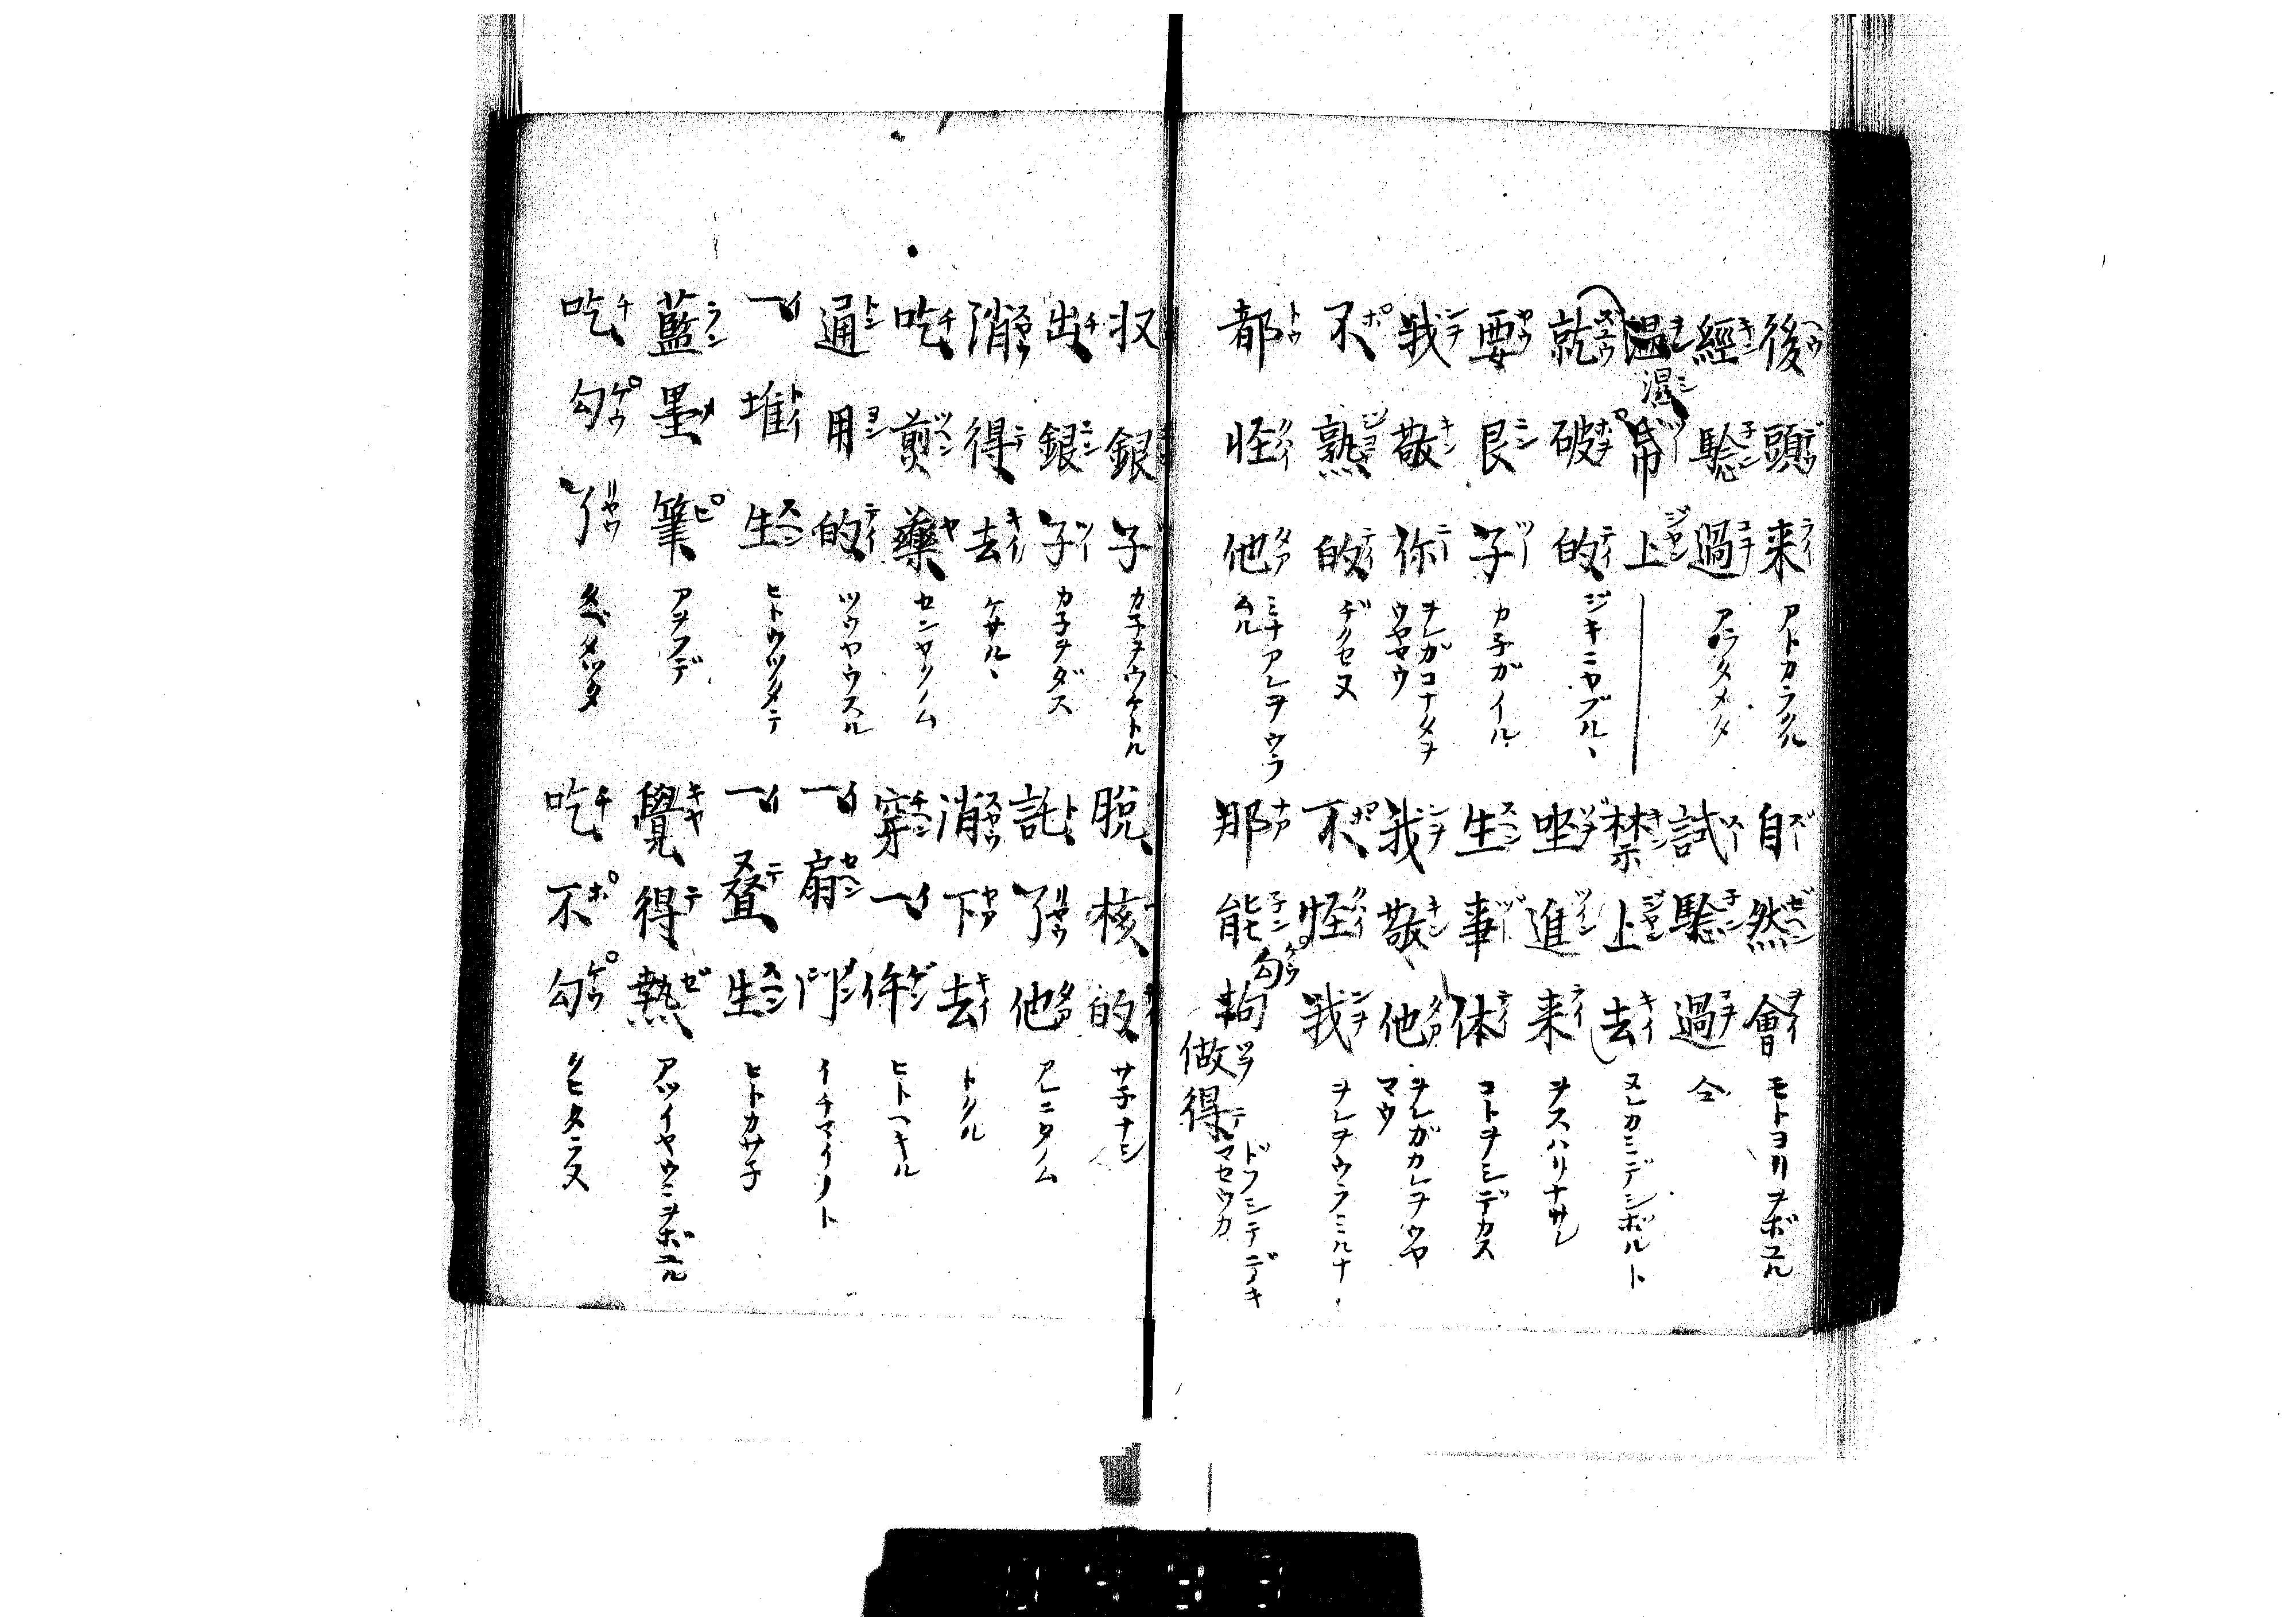 後頭来 アトカラクル
自然會 モトヨリヲボヱル
經驗過 アラタメタ
試驗過 仝
温布上
濕
禁上去 又レカミデシボルト
就破的 ジキニヤブル、
坐進来 ヲスハリナサレ
要艮子 カ子ガイル
生事体 コトヲシデカス
我敬你 ヲレガコナタヲウヤマウ
我敬他 ヲレガカレヲウヤマウ
不熟的 ヂクセヌ
不怪我 ヲレヲウラミルナ
都怪他 ミナアレヲウラムル
那能勾做得 ドフシテデキマセウカ
収銀子 カ子ヲウケトル
脱核的 サ子ナシ
出銀子 カ子ヲダス
託了他 アレニタノム
消得去 ケサル、
消下去 トクル
吃煎藥 センヤクノム
穿一件 ヒトヘキル
通用的 ツウヤウスル
一扇門 イチマイノト
一堆生 ヒトウツタテ
一叠生 ヒトカサ子
藍墨筆 アヲフデ
覺得熱 アツイヤウニヲボユル
吃勾了 タベタツタ
吃不勾 クヒタラヌ